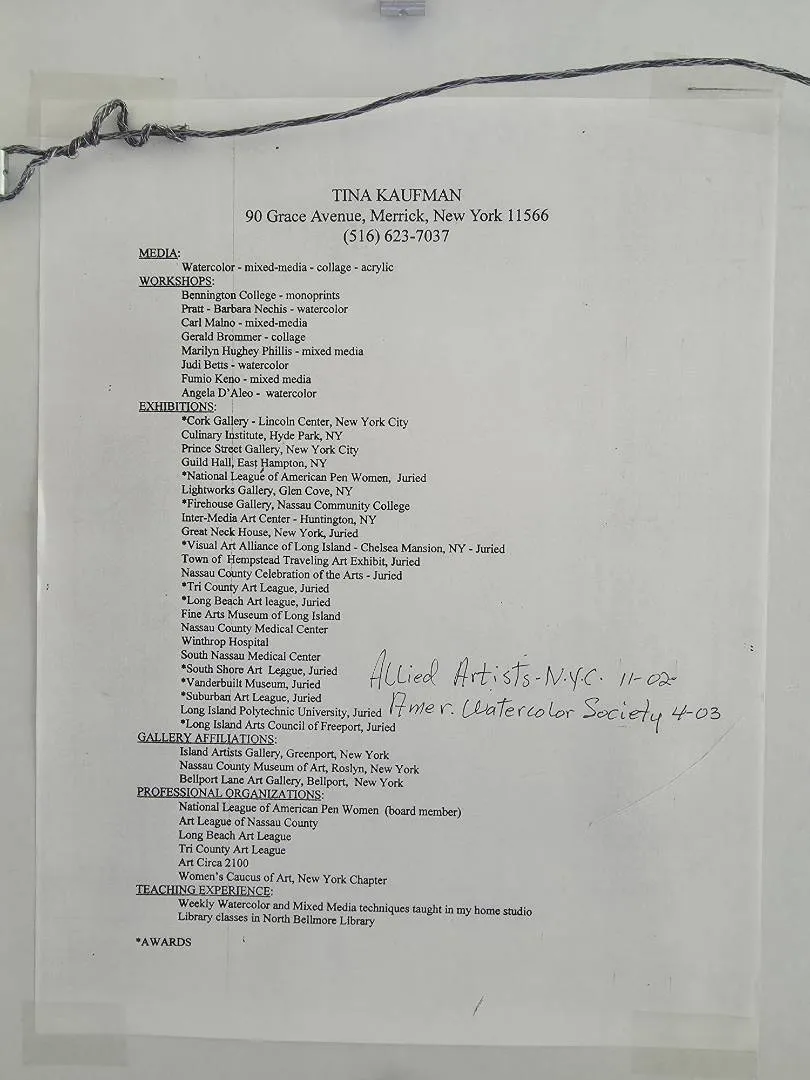 TINA KAUFMAN
90 Grace Avenue, Merrick, New York 11566
(516) 623-7037
MEDIA:
Watercolor - mixed-media - collage - acrylic
WORKSHOPS:
Bennington College - monoprints
Pratt - Barbara Nechis - watercolor
Carl Malno - mixed-media
Gerald Brommer - collage
Marilyn Hughey Phillis - mixed media
Judi Betts - watercolor
Fumio Keno - mixed media
Angela D'Aleo - watercolor
EXHIBITIONS:
*Cork Gallery - Lincoln Center, New York City
Culinary Institute, Hyde Park, NY
Prince Street Gallery, New York City
Guild Hall, East Hampton, NY
*National League of American Pen Women, Juried
Lightworks Gallery, Glen Cove, NY
*Firehouse Gallery, Nassau Community College
Inter-Media Art Center - Huntington, NY
Great Neck House, New York, Juried
*Visual Art Alliance of Long Island - Chelsea Mansion, NY - Juried
Town of Hempstead Traveling Art Exhibit, Juried
Nassau County Celebration of the Arts - Juried
*Tri County Art League, Juried
*Long Beach Art league, Juried
Fine Arts Museum of Long Island
Nassau County Medical Center
Winthrop Hospital
South Nassau Medical Center
*South Shore Art League, Juried
Allied Artists-N.Y.C. 11-02
*Vanderbuilt Museum, Juried
*Suburban Art League, Juried
Long Island Polytechnic University, Juried
Amer. Watercolor Society 4-03
*Long Island Arts Council of Freeport, Juried
GALLERY AFFILIATIONS:
Island Artists Gallery, Greenport, New York
Nassau County Museum of Art, Roslyn, New York
Bellport Lane Art Gallery, Bellport, New York
PROFESSIONAL ORGANIZATIONS:
National League of American Pen Women (board member)
Art League of Nassau County
Long Beach Art League
Tri County Art League
Art Circa 2100
Women's Caucus of Art, New York Chapter
TEACHING EXPERIENCE:
Weekly Watercolor and Mixed Media techniques taught in my home studio
Library classes in North Bellmore Library
*AWARDS